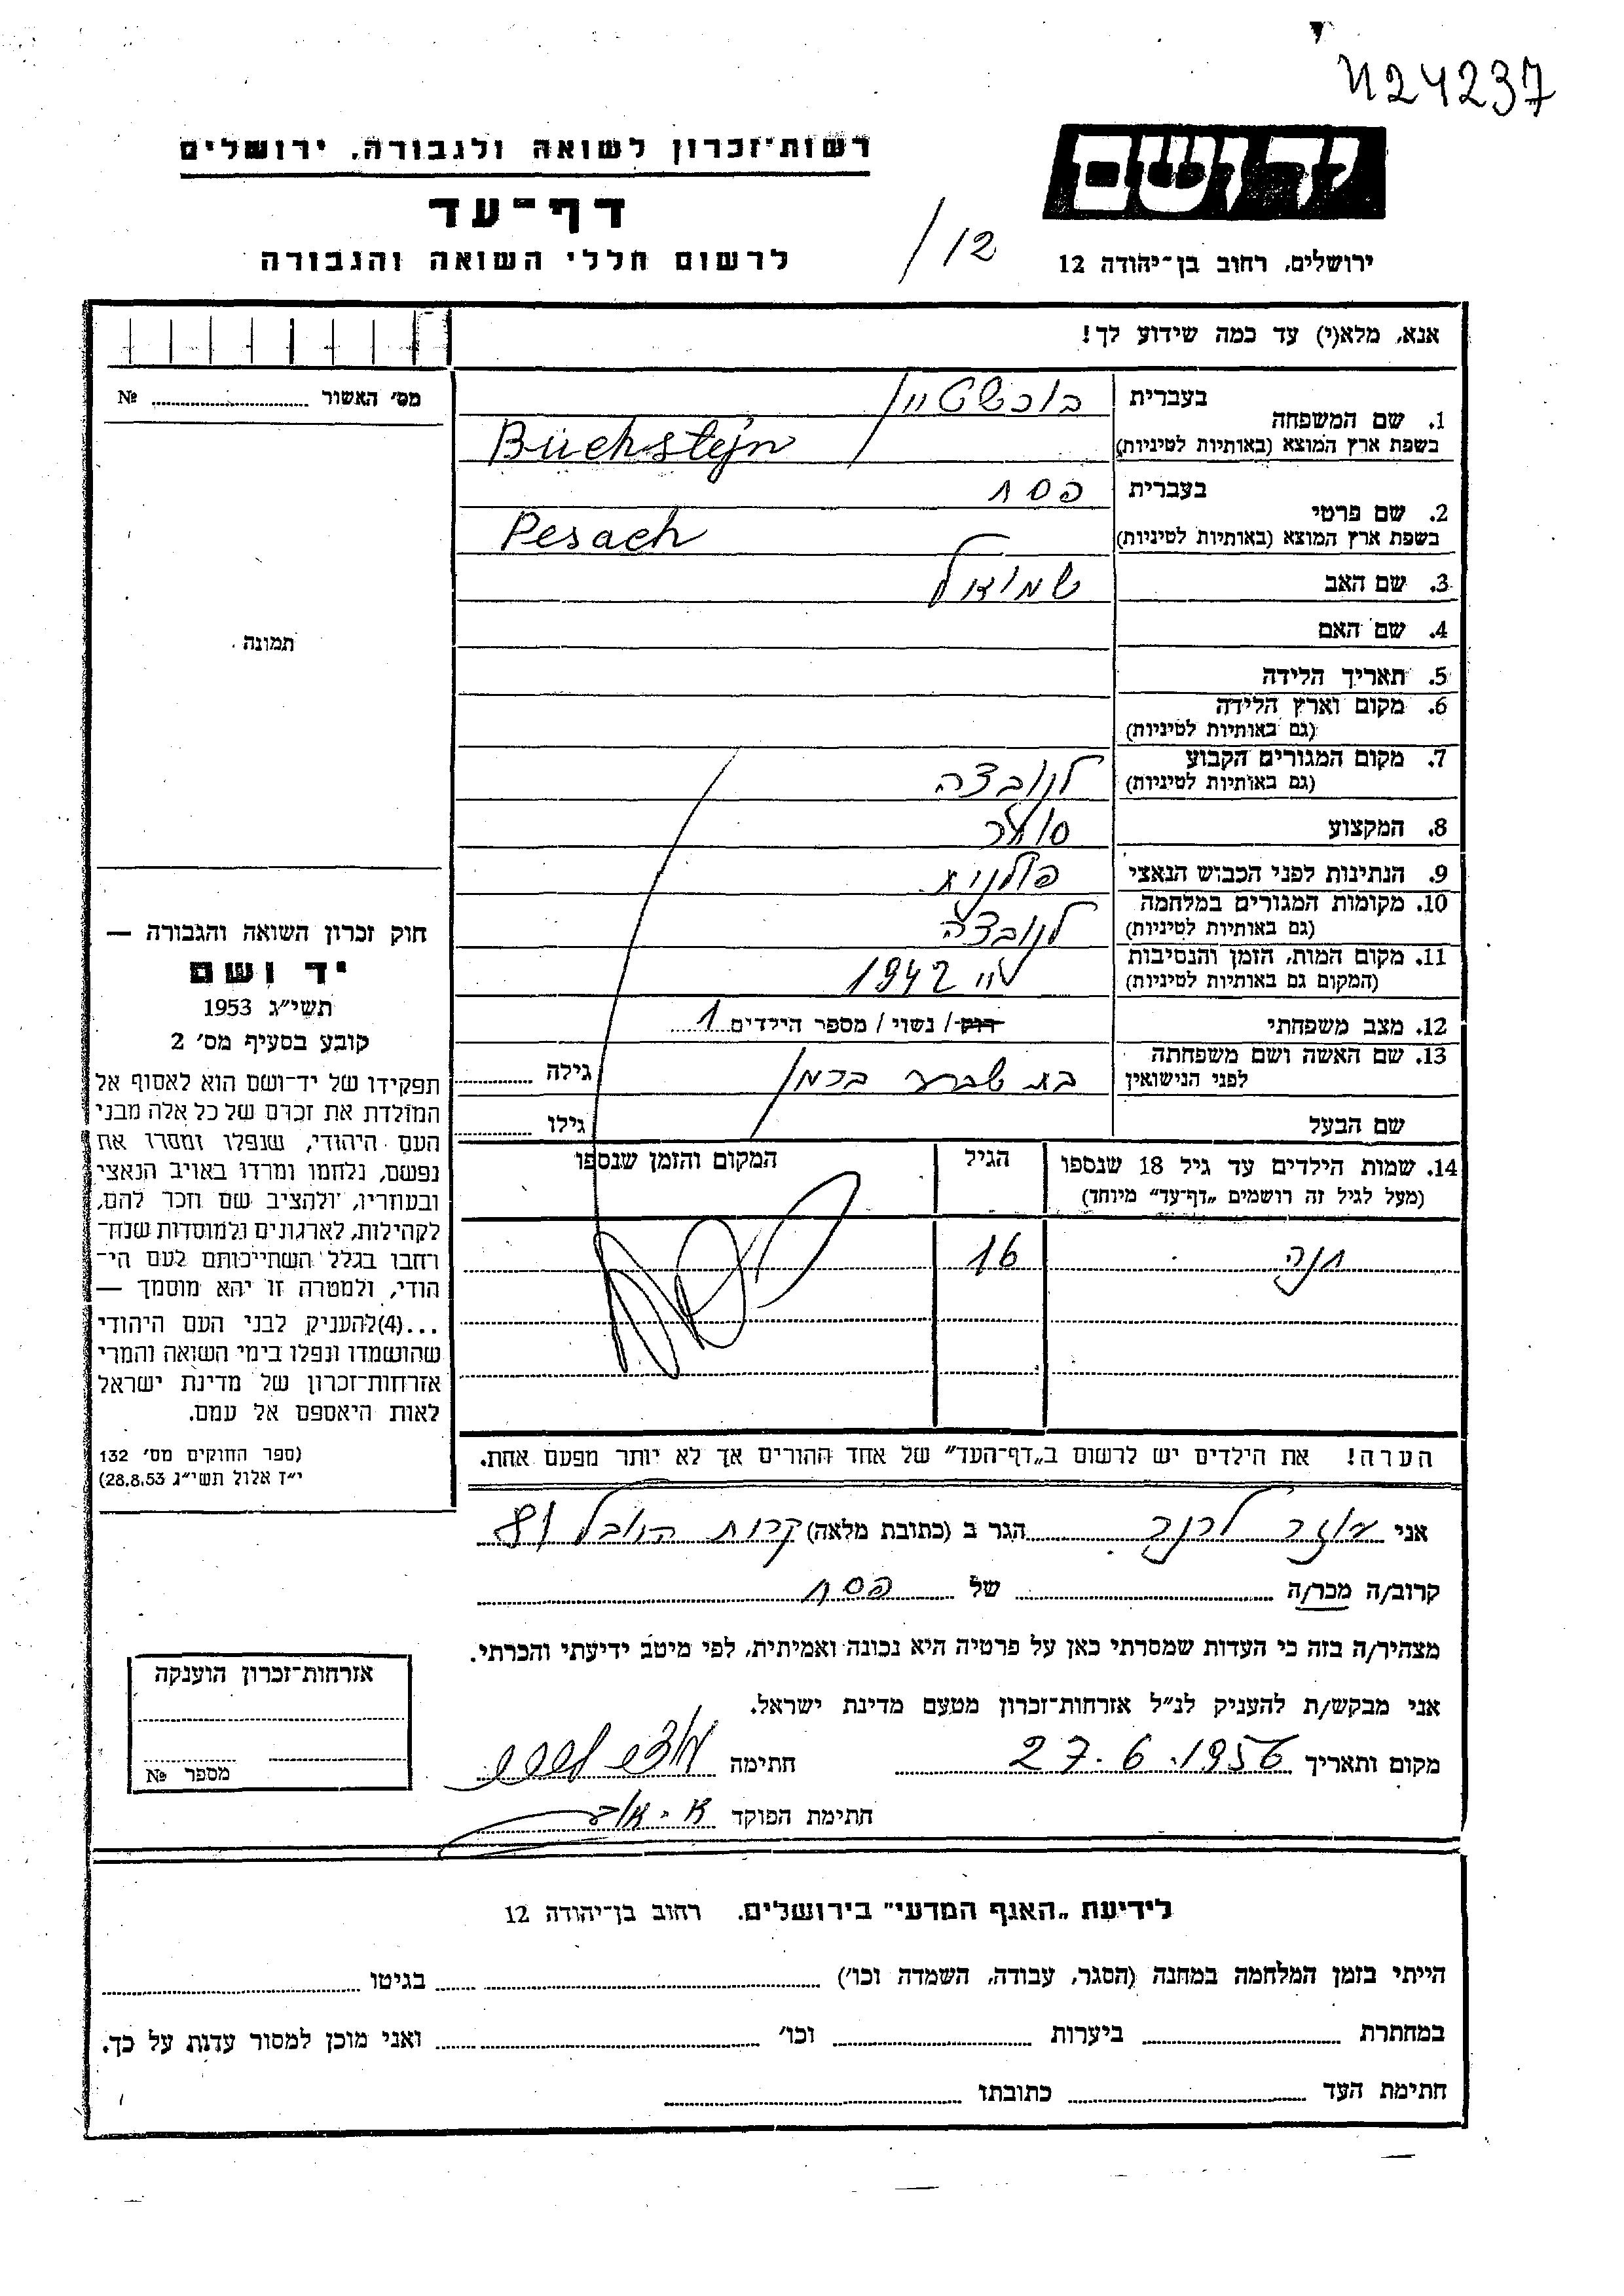 מ24237
יד ושם
ירושלים, רחוב בן-יהודה 12
/12
רשות-זכרון לשואה ולגבורה, ירושלים
דף-עד
לרשום חללי השואה והגבורה
אנא, מלא(י) עד כמה שידוע לך!
1. שם המשפחה
בעברית בוכשטיין
בשפת ארץ המוצא (באותיות לטיניות) Buchstejn
2. שם פרטי
בעברית פסח
בשפת ארץ המוצא (באותיות לטיניות) Pesach
3. שם האב שמואל
4. שם האם
5. תאריך הלידה
6. מקום וארץ הלידה
(גם באותיות לטיניות)
7. מקום המגורים הקבוע
(גם באותיות לטיניות)
8. המקצוע סוחר
9. הנתינות לפני הכבוש הנאצי פולנית
10. מקומות המגורים במלחמה
(גם באותיות לטיניות)
11. מקום המות, הזמן והנסיבות
(המקום גם באותיות לטיניות) 1942
12. מצב משפחתי רווק / נשוי / מספר הילדים 1
13. שם האשה ושם משפחתה
לפני הנישואין בת שבע גילה
שם הבעל גילו
14. שמות הילדים עד גיל 18 שנספו הגיל המקום והזמן שנספו
(מעל לגיל זה רושמים „דף-עד" מיוחד)
חנה 16
הערה! את הילדים יש לרשום ב„דף-העד" של אחד ההורים אך לא יותר מפעם אחת.
מס' האשור №
תמונה
חוק זכרון השואה והגבורה —
יד ושם
תשי"ג 1953
קובע בסעיף מס' 2
תפקידו של יד-ושם הוא לאסוף אל
המולדת את זכרם של כל אלה מבני
העם היהודי, שנפלו ומסרו את
נפשם, נלחמו ומרדו באויב הנאצי
ובעוזריו, ולהציב שם וזכר להם,
לקהילות, לארגונים ולמוסדות שנח-
רחבו בגלל השתייכותם לעם הי-
הודי, ולמטרה זו יהא מוסמך —
...(4)להעניק לבני העם היהודי
שהושמדו ונפלו בימי השואה והמרי
אזרחות-זכרון של מדינת ישראל
לאות היאספם אל עמם.
(ספר החוקים מס' 132
י"ז אלול תשי"ג 28.8.53)
אני לרנר הגר ב (כתובת מלאה) קרית
קרוב/ה מכר/ה של פסח
מצהיר/ה בזה כי העדות שמסרתי כאן על פרטיה היא נכונה ואמיתית, לפי מיטב ידיעתי והכרתי.
אני מבקש/ת להעניק לנ"ל אזרחות-זכרון מטעם מדינת ישראל.
מקום ותאריך 27.6.1956 חתימה
חתימת הפוקד
אזרחות-זכרון הוענקה
מספר №
לידיעת „האגף המדעי" בירושלים. רחוב בן-יהודה 12
הייתי בזמן המלחמה במחנה (הסגר, עבודה, השמדה וכו') בגיטו
במחתרת ביערות וכו' ואני מוכן למסור עדות על כך.
חתימת העד כתובתו